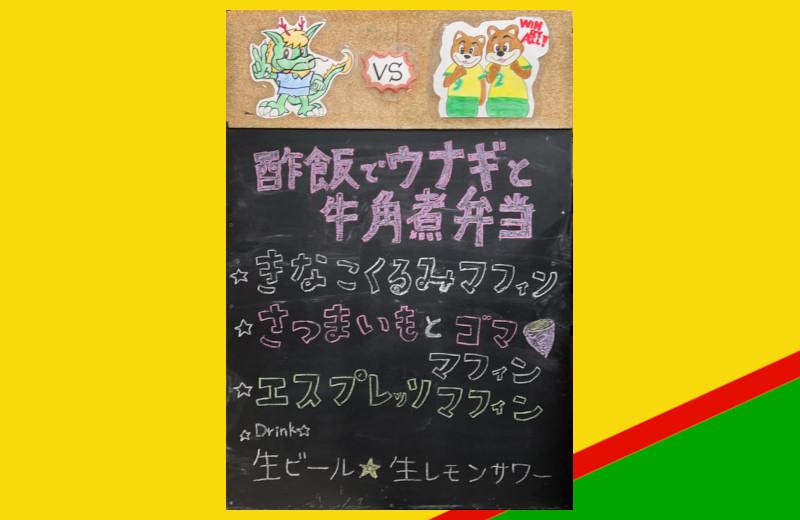 VS
WIN
BY
ALL!!
9 2
酢飯でウナギと
牛角煮弁当
☆きなこくるみマフィン
☆さつまいもとゴマ
マフィン
☆エスプレッソマフィン
☆Drink☆
生ビール★生レモンサワー